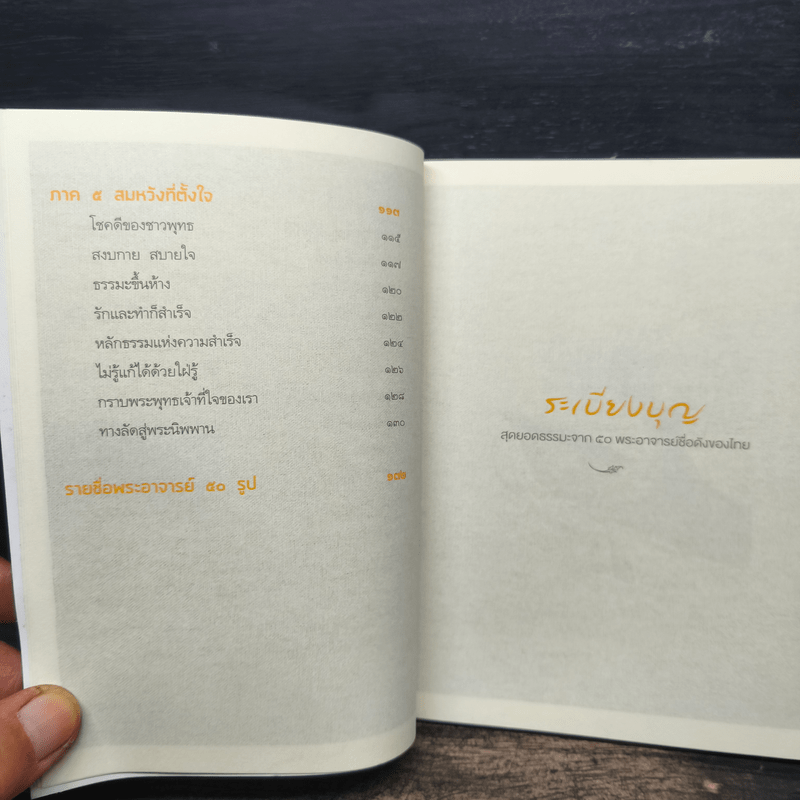 ภาค ๕ สมหวังที่ตั้งใจ ๑๑๓
โชคดีของชาวพุทธ ๑๑๕
สงบกาย สบายใจ ๑๑๗
ธรรมะขึ้นห้าง ๑๒๐
รักและทำก็สำเร็จ ๑๒๒
หลักธรรมแห่งความสำเร็จ ๑๒๔
ไม่รู้แก้ได้ด้วยใฝ่รู้ ๑๒๖
กราบพระพุทธเจ้าที่ใจของเรา ๑๒๘
ทางลัดสู่พระนิพพาน ๑๓๐
รายชื่อพระอาจารย์ ๕๐ รูป
ระเบียงบุญ
สุดยอดธรรมะจาก ๕๐ พระอาจารย์ชื่อดังของไทย